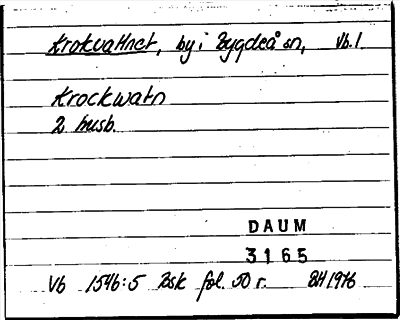 Krokvattnet, by i Bygdeå sn, Vb.l
Krockwatn
2 husb.
DAUM
3165
Vb 1546:5 Bsk fol. 50 r. BH 1976